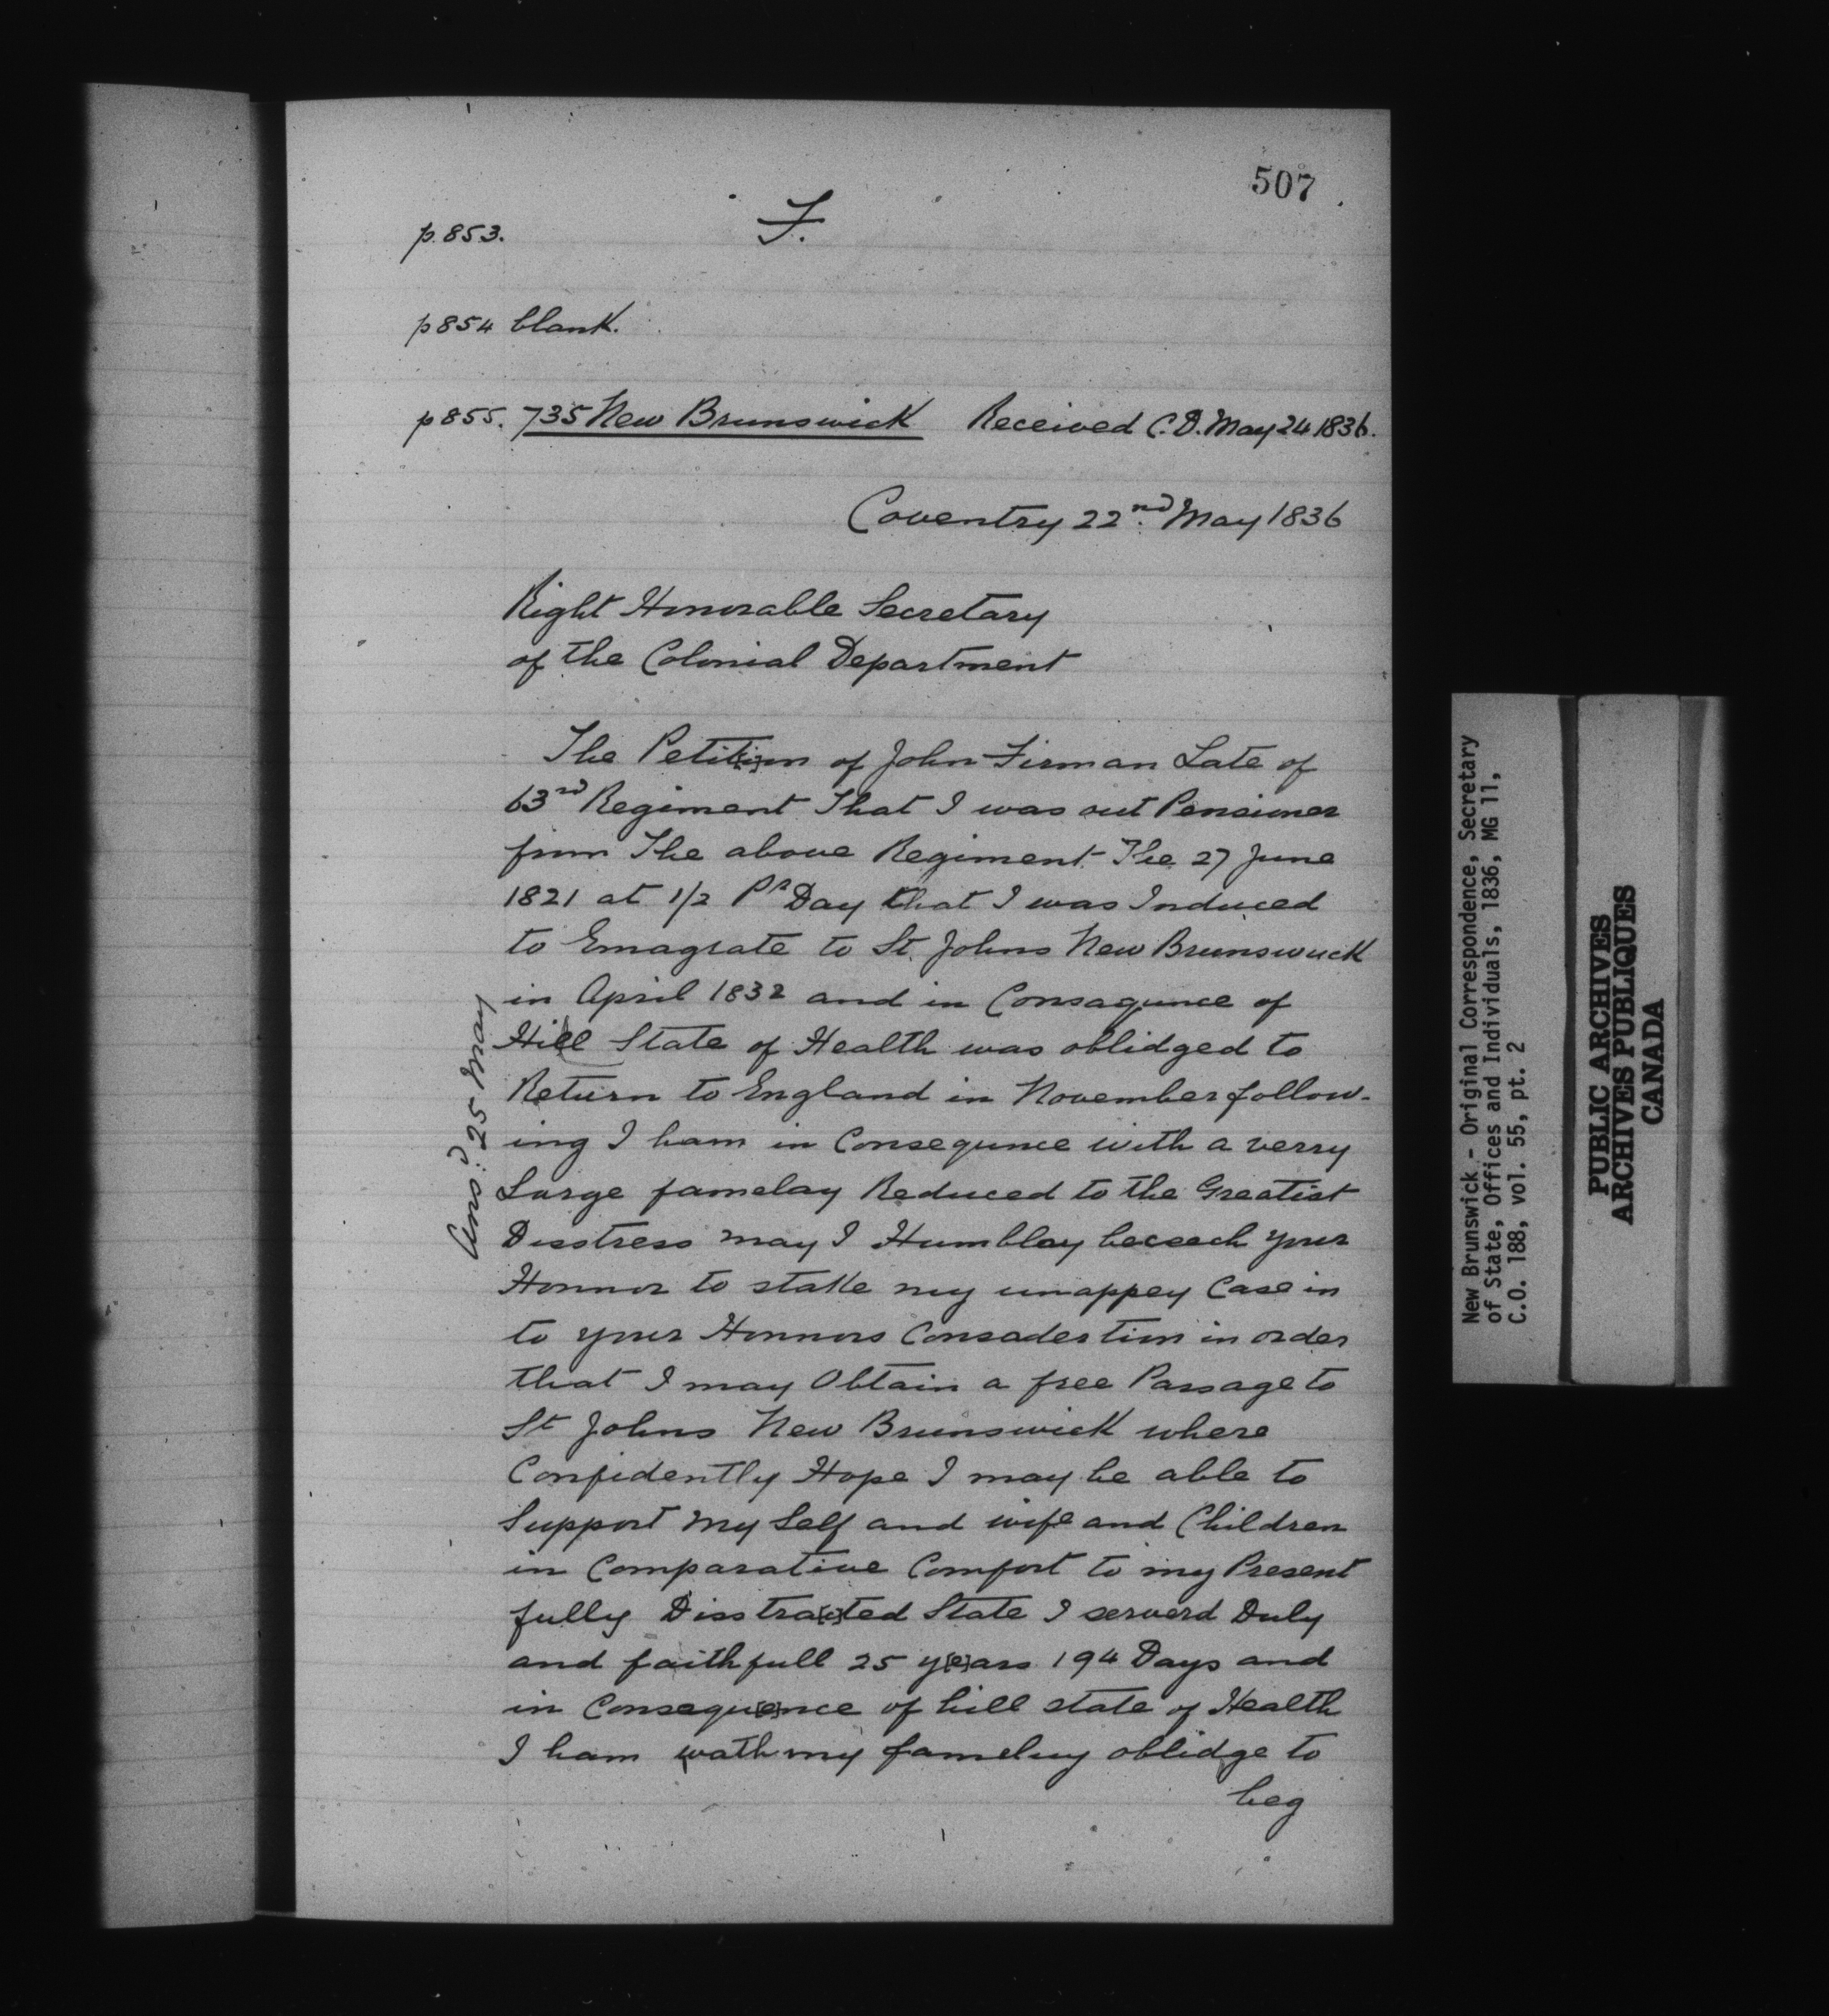 507
p. 853.
F.
p854 blank.
p855. 735 New Brunswick Received C.D. May 24 1836.
Coventry 22nd May 1836
Right Honorable Secretary
of the Colonial Department
The Petit[i]on of John Firman Late of
63rd Regiment That I was out Pensioner
from The above Regiment The 27 June
1821 at 1/2 Pr Day that I was Induced
to Emagrate to St. Johns New Brunswuck
in April 1832 and in Consaqunce of
Hill State of Health was oblidged to
Return to England in November follow-
ing I ham in Consequnce with a verry
Large famelay Reduced to the Greatist
Disstress may I Humblay beceech your
Honnor to stake my unappey Case in
to your Honnors Consadertion in order
that I may Obtain a free Passage to
St Johns New Brunswick where
Confidently Hope I may be able to
Support My Self and wife and Children
in Comparative Comfort to my Present
fully Disstra[c]ted State I serverd Duly
and faithfull 25 y[e]ars 194 Days and
in Consequ[e]nce of hill state of Health
I ham wath my fameluy oblidge to
beg
Ansd. 25 May
New Brunswick - Original Correspondence, Secretary
of State, Offices and Individuals, 1836, MG 11,
C.O. 188, vol. 55, pt. 2
PUBLIC ARCHIVES
ARCHIVES PUBLIQUES
CANADA